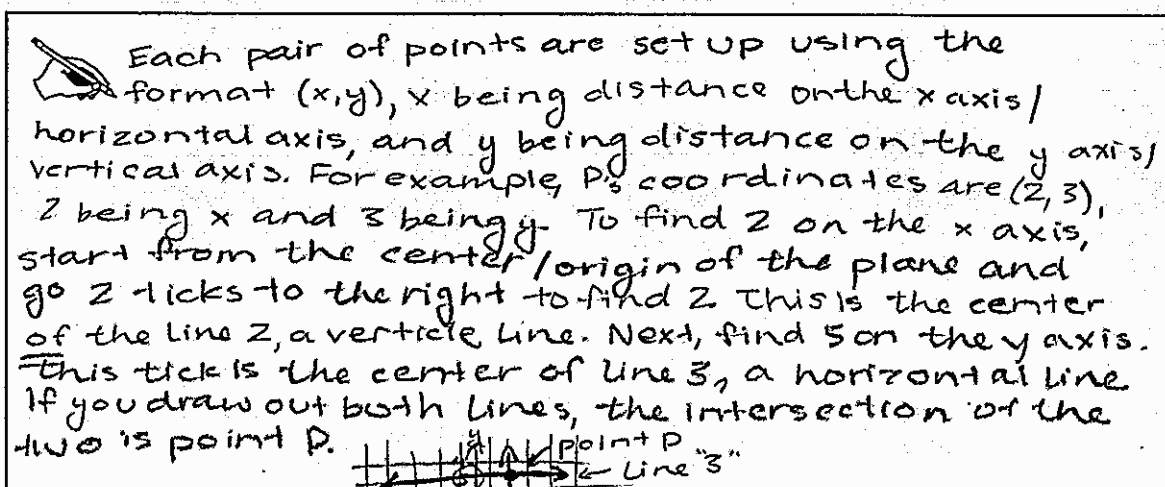 Each pair of points are set up using the
format (x,y), x being distance on the x axis/
horizontal axis, and y being distance on the y axis/
vertical axis. For example, P's coordinates are (2,3),
2 being x and 3 being y. To find 2 on the x axis,
start from the center/origin of the plane and
go 2 ticks to the right to find 2. This is the center
of the line 2, a verticle line. Next, find 3 on the y axis.
This tick is the center of line 3, a horizontal line.
If you draw out both lines, the intersection of the
two is point P.
point P
Line "3"